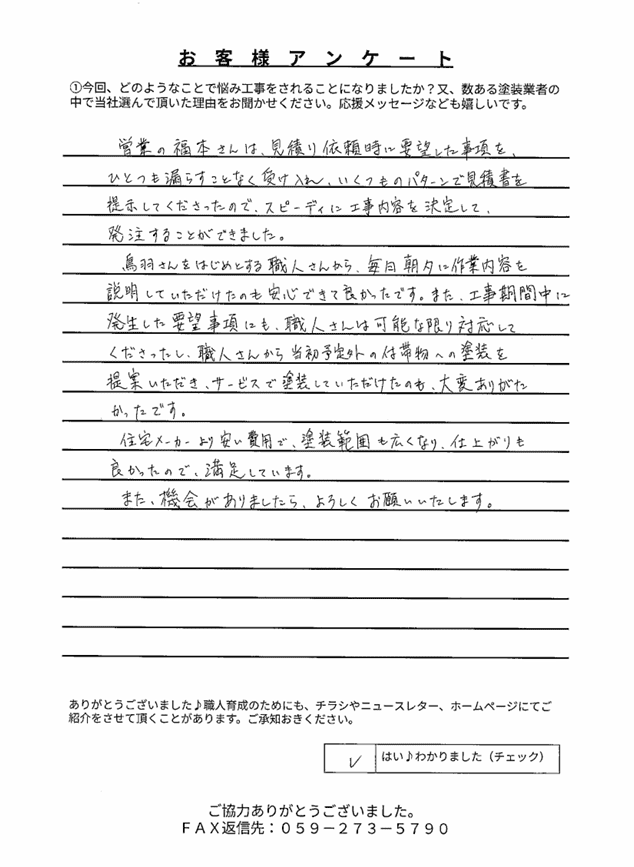 お客様アンケート
①今回、どのようなことで悩み工事をされることになりましたか？又、数ある塗装業者の
中で当社選んで頂いた理由をお聞かせください。応援メッセージなども嬉しいです。
営業の福本さんは、見積り依頼時に要望した事項を、
ひとつも漏らすことなく受け入れ、いくつものパターンで見積書を
提示してくださったので、スピーディに工事内容を決定して、
発注することができました。
鳥羽さんをはじめとする職人さんから、毎日朝夕に作業内容を
説明していただけたのも安心できて良かったです。また、工事期間中に
発生した要望事項にも、職人さんは可能な限り対応して
くださったし、職人さんから当初予定外の付帯物への塗装を
提案いただき、サービスで塗装していただけたのも、大変ありがた
かったです。
住宅メーカーより安い費用で、塗装範囲も広くなり、仕上がりも
良かったので、満足しています。
また、機会がありましたら、よろしくお願いいたします。
ありがとうございました♪職人育成のためにも、チラシやニュースレター、ホームページにてご
紹介をさせて頂くことがあります。ご承知おきください。
✓ はい♪わかりました（チェック）
ご協力ありがとうございました。
ＦＡＸ返信先：０５９－２７３－５７９０